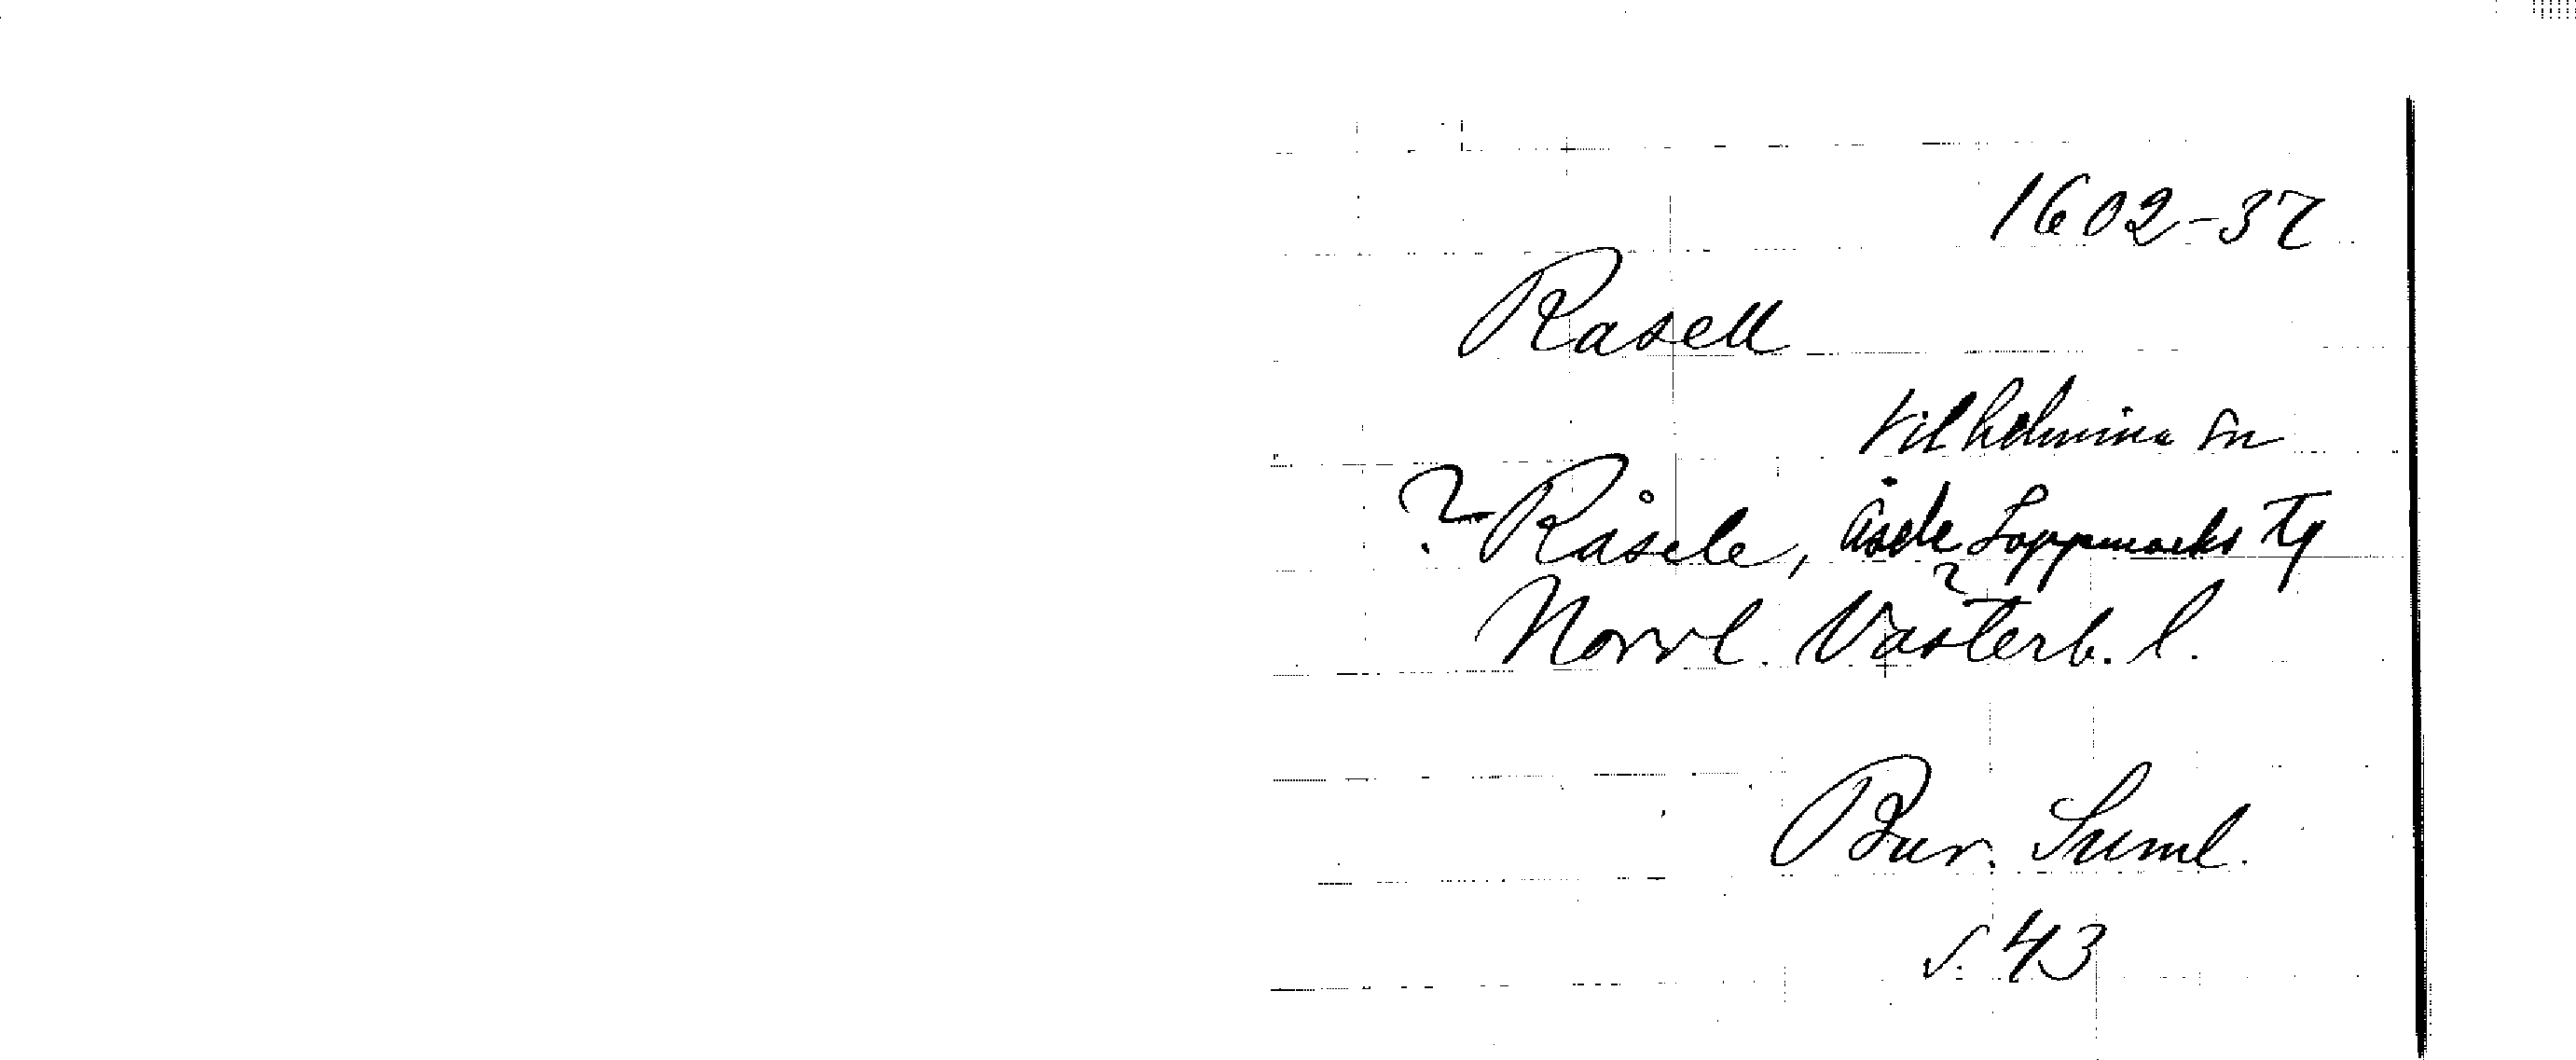 1602-37
Rasell
Vilhelmina sn
? Råsele, Åsele Lappmarks tg
Norrl. Västerb. l.
Bur. Suml.
s. 43